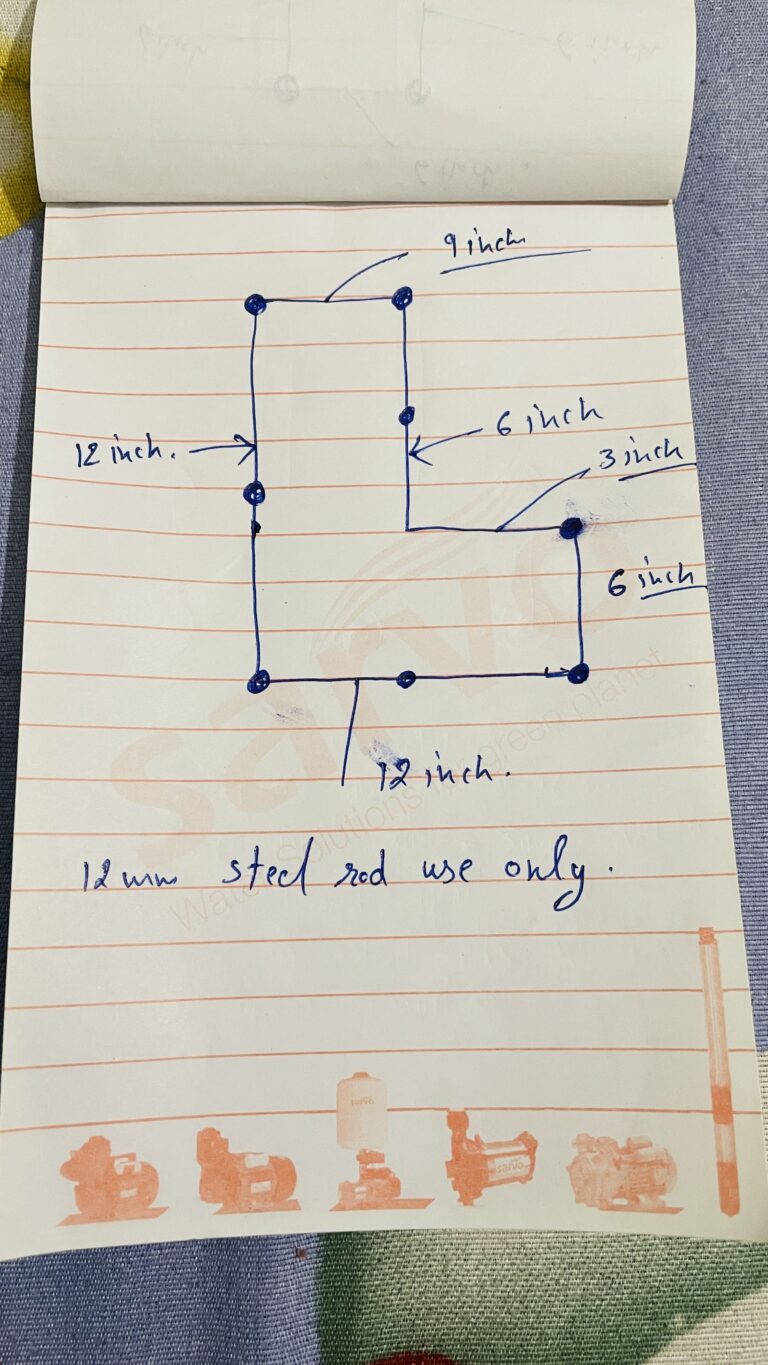 9 inch
6 inch
12 inch.
3 inch
6 inch
12 inch.
12 mm steel rod use only.
sarvo
Water Solutions for green planet